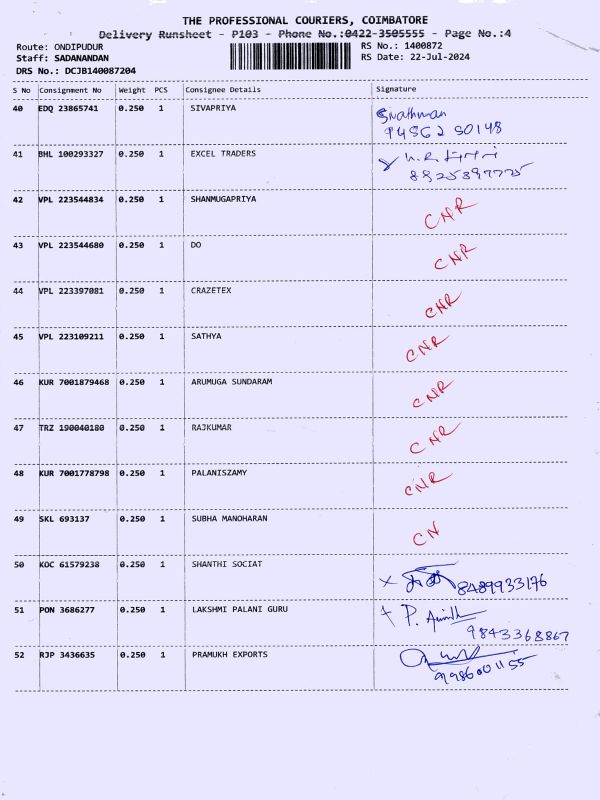 THE PROFESSIONAL COURIERS, COIMBATORE
Delivery Runsheet - P103 - Phone No.:0422-3505555 - Page No.:4
Route: ONDIPUDUR RS No.: 1400872
Staff: SADANANDAN RS Date: 22-Jul-2024
DRS No.: DCJB140087204
S No Consignment No Weight PCS Consignee Details Signature
40 EDQ 23865741 0.250 1 SIVAPRIYA
41 BHL 100293327 0.250 1 EXCEL TRADERS
42 VPL 223544834 0.250 1 SHANMUGAPRIYA CNR
43 VPL 223544680 0.250 1 DO CNR
44 VPL 223397081 0.250 1 CRAZETEX CNR
45 VPL 223109211 0.250 1 SATHYA CNR
46 KUR 7001879468 0.250 1 ARUMUGA SUNDARAM CNR
47 TRZ 190040180 0.250 1 RAJKUMAR CNR
48 KUR 7001778798 0.250 1 PALANISZAMY CNR
49 SKL 693137 0.250 1 SUBHA MANOHARAN CN
50 KOC 61579238 0.250 1 SHANTHI SOCIAT
8489933176
51 PON 3686277 0.250 1 LAKSHMI PALANI GURU P.
9843368867
52 RJP 3436635 0.250 1 PRAMUKH EXPORTS